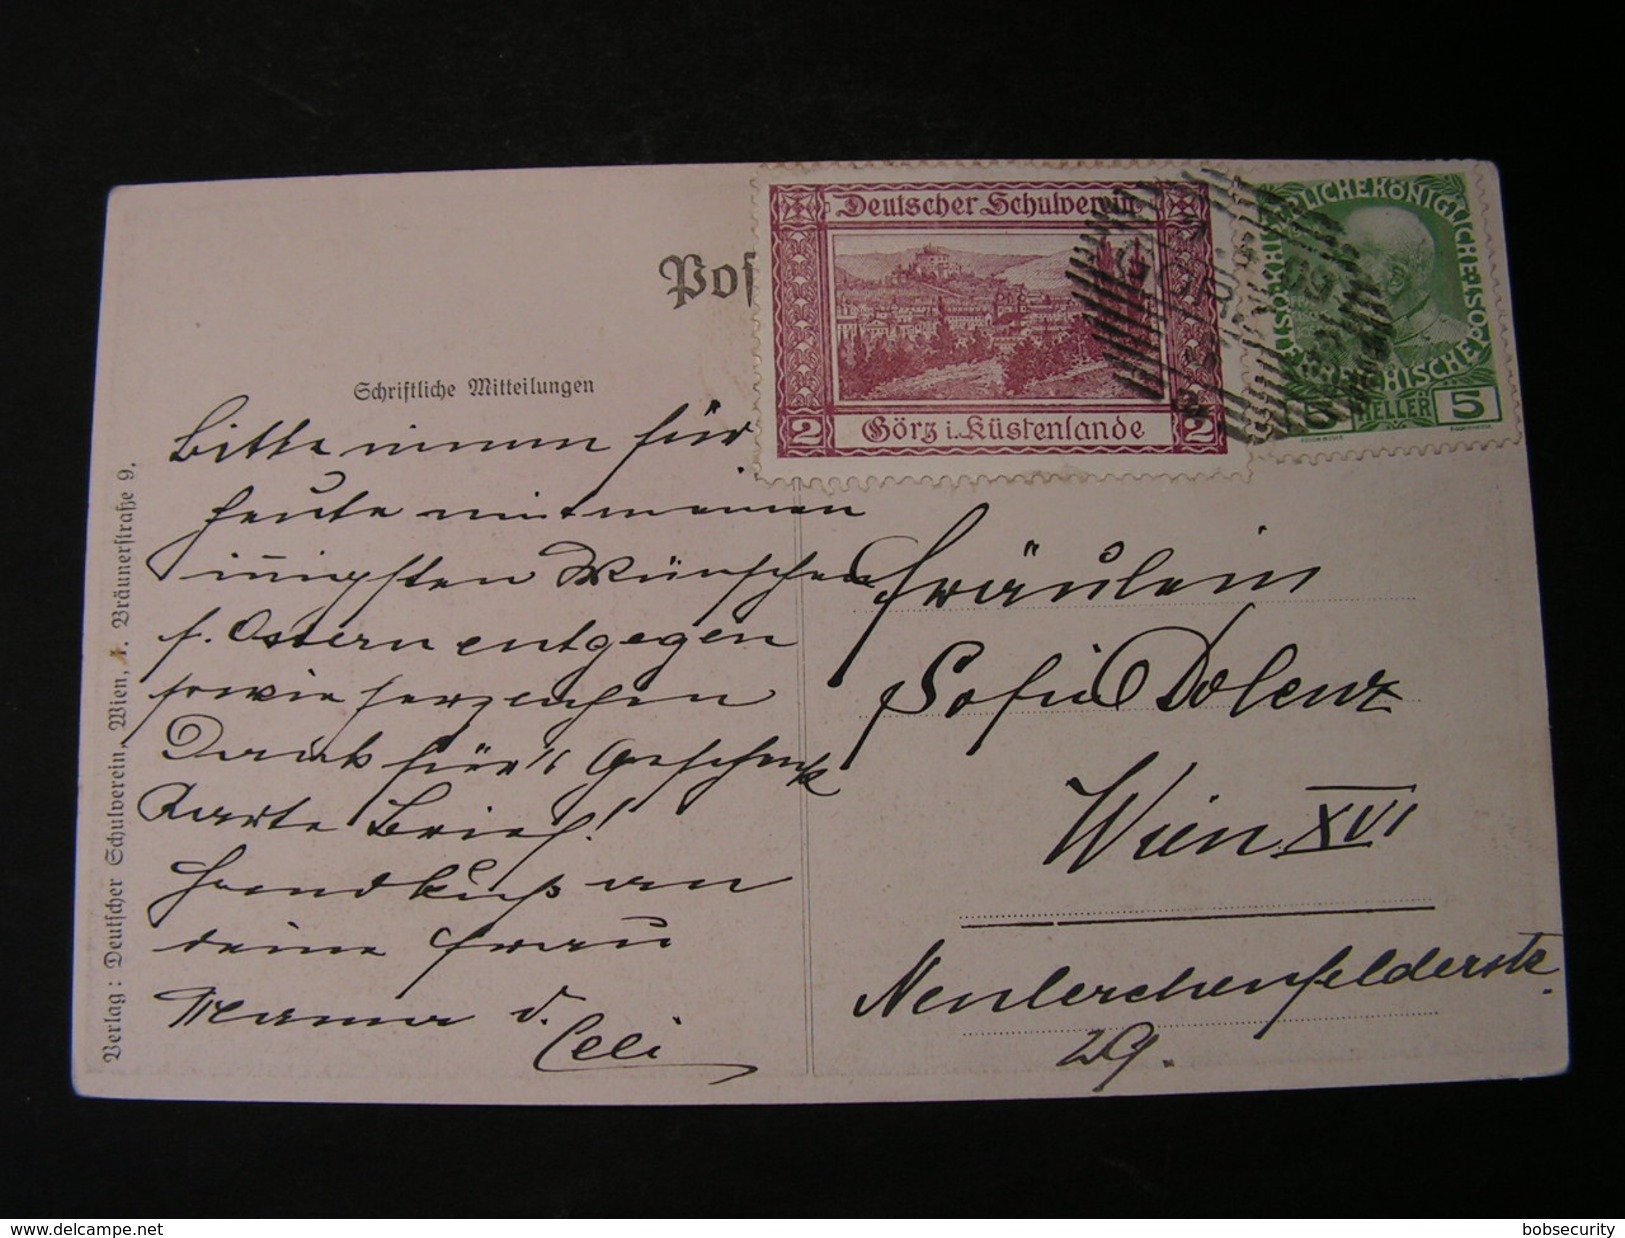 Pos
Schriftliche Mitteilungen
Deutscher Schulverein
2 Görz i. Küstenlande 2
KAISERLICHE KÖNIGLICHE ÖSTERREICHISCHE POST
5 HELLER 5
Bitte nimm für
heute mit meinen
innigsten Wünschen
f. Ostern entgegen
sowie herzlichen
Dank für's Geschenk
Karte Brief!
Handkuß an
deine Frau
Mama d.
Celi
Fräulein
Sofie Dolenz
Wien XVI
Neulerchenfelderstr.
29.
Verlag: Deutscher Schulverein, Wien, Bräunerstraße 9.
delcampe.net
bobsecurity